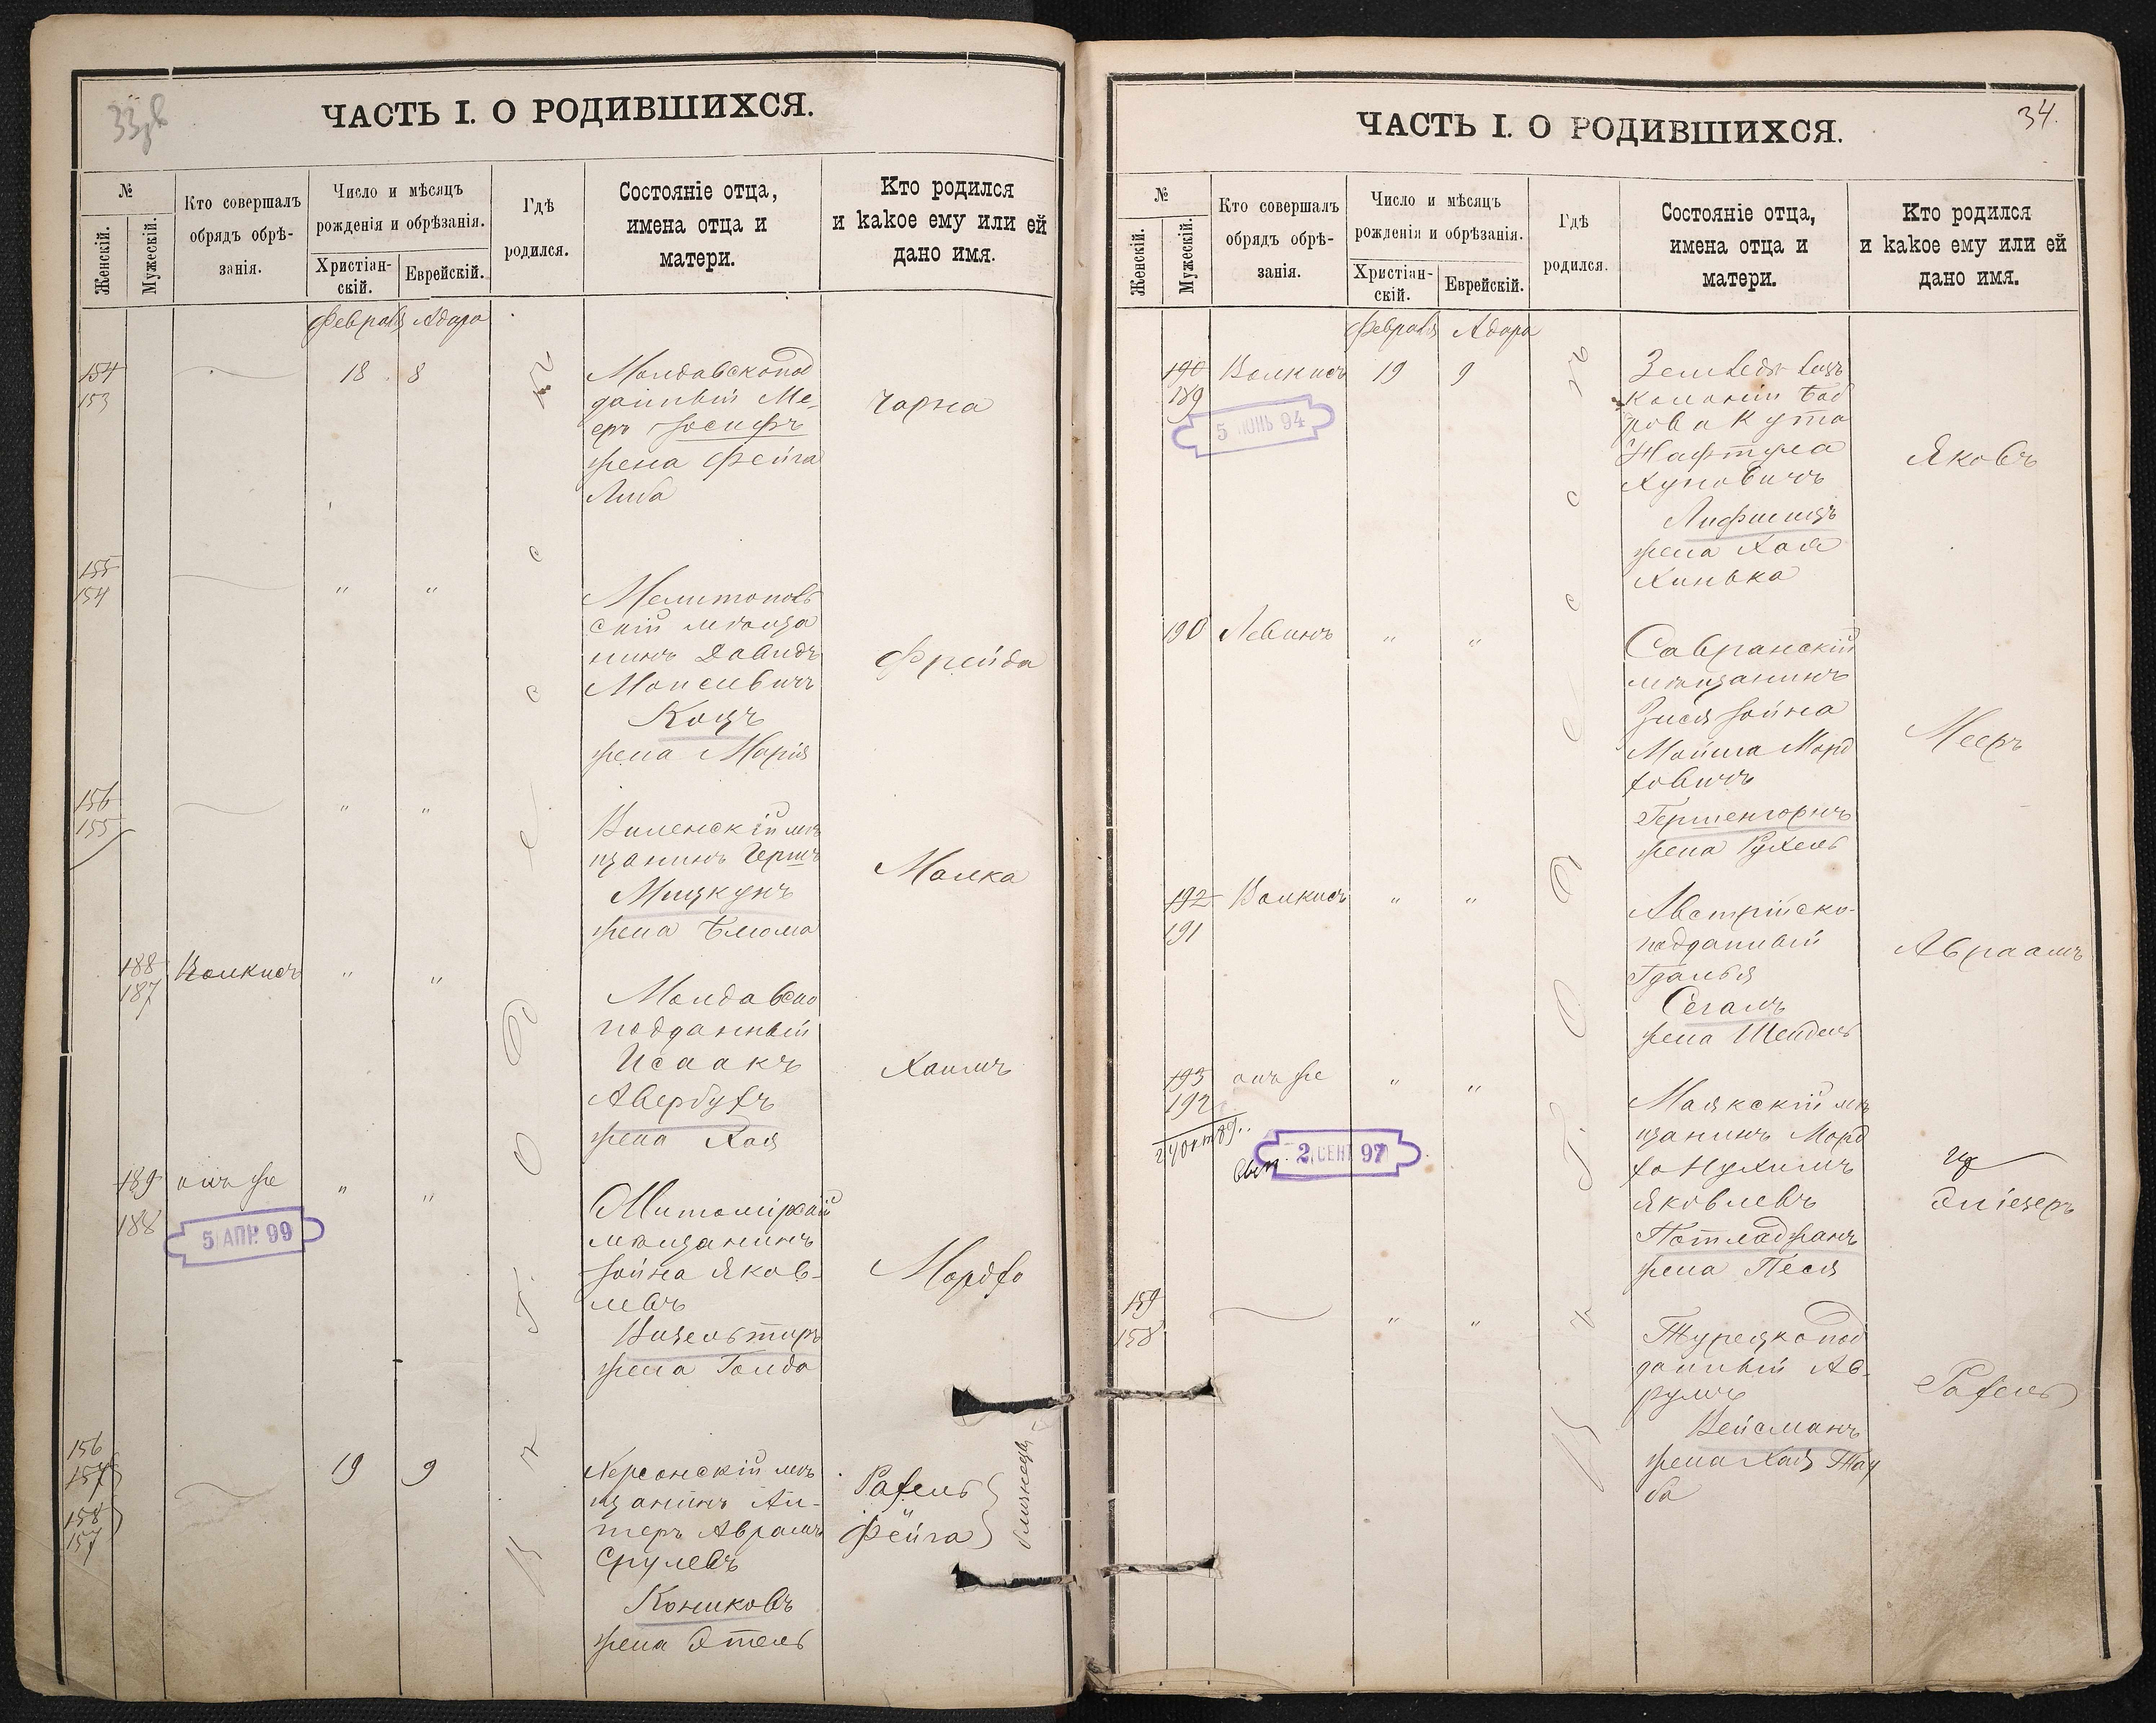 ЧАСТЬ I. О РОДИВШИХСЯ.
№
Женскій.
Мужескій.
Кто совершалъ
обрядъ обрѣ-
занія.
Число и мѣсяцъ
рожденія и обрѣзанія.
Христіан-
скій.
Еврейскій.
Гдѣ
родился.
Состояніе отца,
имена отца и
матери.
Кто родился
и какое ему или ей
дано имя.
Февраля Адара
154
153
18 8
Молдавскопод
данный Ме-
еръ Іосифъ
жена Фейга
Либа
Чарна
155
154
" "
Мелитополь
скій мѣща
нинъ Давидъ
Моисеевичъ
Кацъ
жена Марія
Фрейда
156
155
" "
Виленскій мѣ
щанинъ Гершъ
Мицкунъ
жена Блюма
Малка
188
187
Волкисъ
" "
Молдавско
подданный
Исаакъ
Авербухъ
жена Хая
Хаимъ
189
188
онъ же
5 АПР. 99
" "
Житомірскій
мѣщанинъ
Іойна Яков-
левъ
жена Голда
Мордхо
156
157
158
157
19 9
Херсонскій мѣ
щанинъ Ан-
Аврамъ
Срулевъ
Кониковъ
жена Этель
Рахель
Фейга
близнецы
Въ г. Одессѣ
ЧАСТЬ I. О РОДИВШИХСЯ.
34.
№
Женскій.
Мужескій.
Кто совершалъ
обрядъ обрѣ-
занія.
Число и мѣсяцъ
рожденія и обрѣзанія.
Христіан-
скій.
Еврейскій.
Гдѣ
родился.
Состояніе отца,
имена отца и
матери.
Кто родился
и какое ему или ей
дано имя.
Февраля Адара
190
189
Волкисъ
5 ИЮНЬ 94
19 9
Земледѣлецъ
колоніи Боб
рова Кута
Нафтула
Хуновичъ
Лифшицъ
жена Хая
Хинька
Яковъ
190
Левинъ
" "
Савранскій
мѣщанинъ
Зися Іойна
Мойша Морд
ховичъ
Гершенгорнъ
жена Рухель
Мееръ
192
191
Волкисъ
" "
Австрійско-
подданный
Гдалья
Сегалъ
жена Шейдель
Авраамъ
193
192
онъ же
2 СЕНТ 97
" "
Маякскій мѣ
щанинъ Морд
хо Нухимъ
Яковлевъ
Потладжанъ
жена Песя
Эліезеръ
159
158
" "
Турецкопод
данный Ав-
румъ
Вейсманъ
жена Хая Тау
ба
Рахель
Въ г. Одессѣ